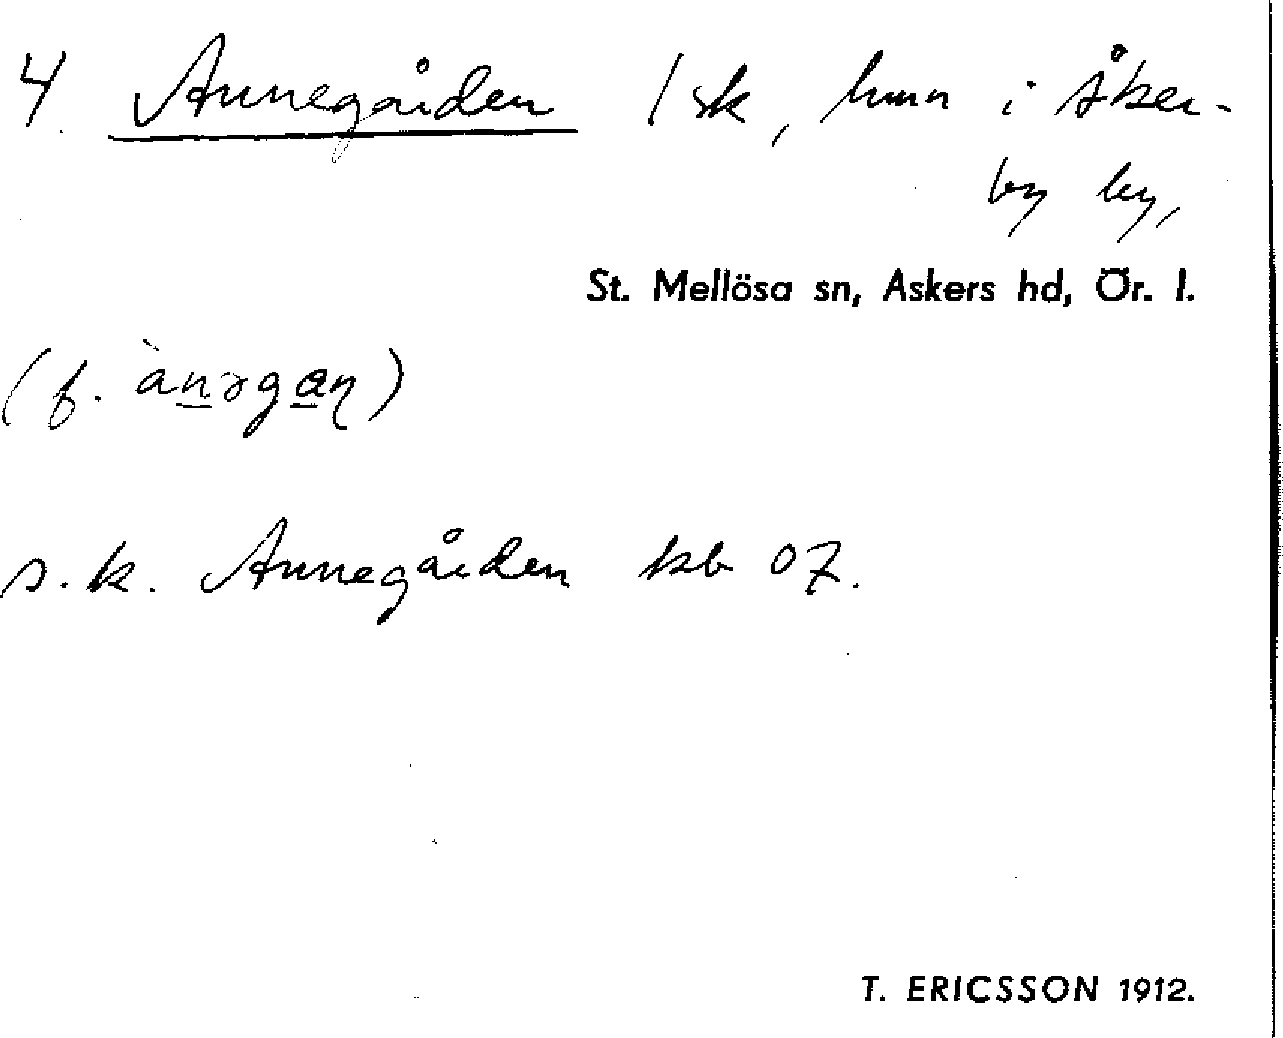 4. Annegården 1 sk, hmn i Åker-
by by,
St. Mellösa sn, Askers hd, Ör. l.
(f. ànəgan)
s.k. Annegården kb 07.
T. ERICSSON 1912.